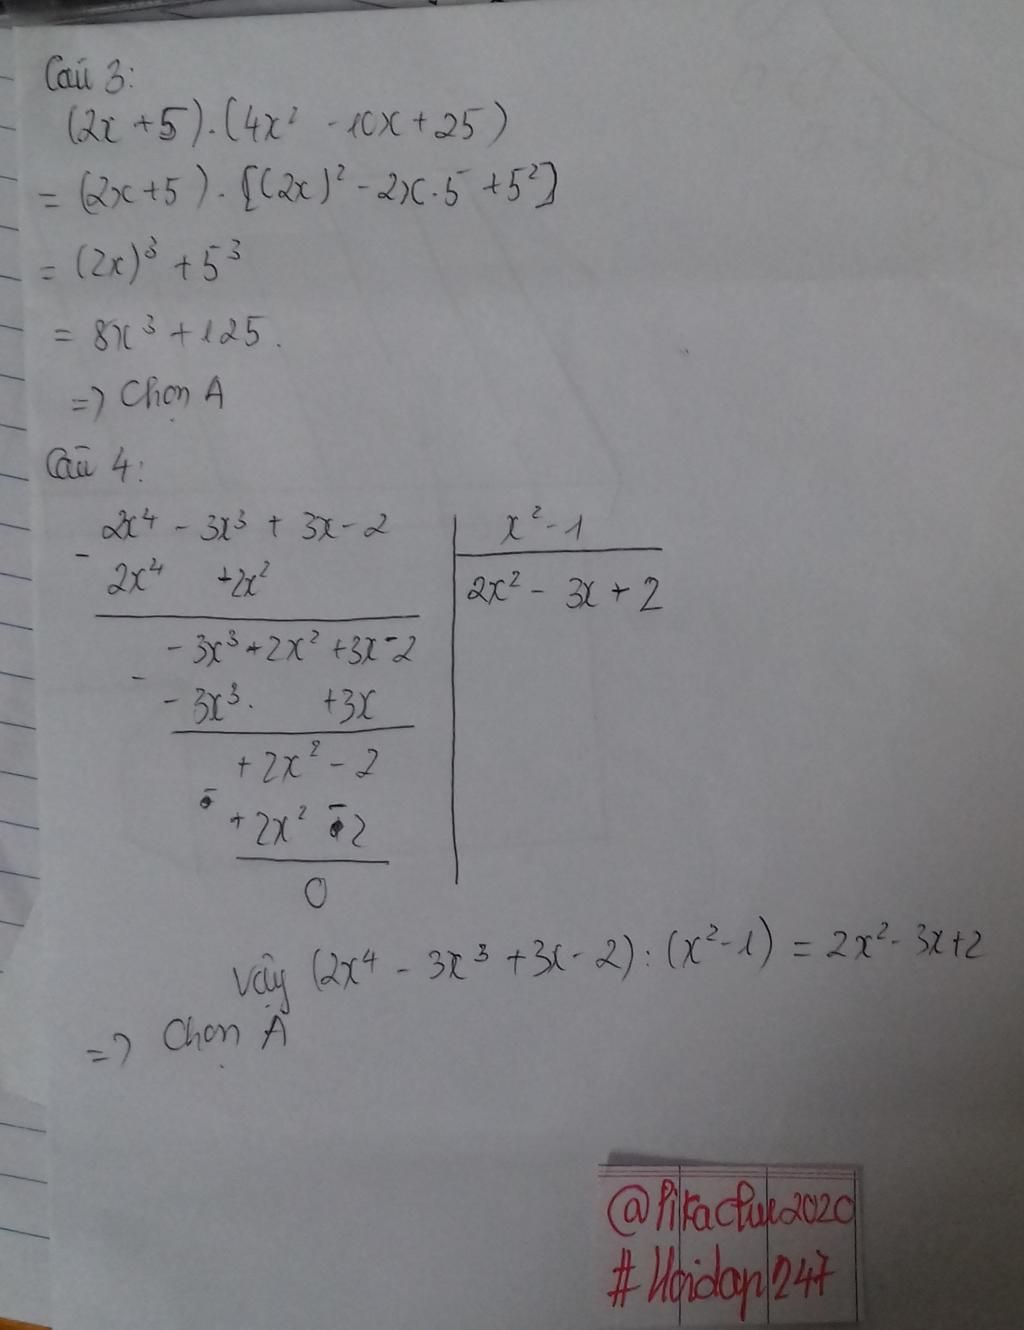 Câu 3:
(2x + 5).(4x² - 10x + 25)
= (2x + 5).[(2x)² - 2x.5 + 5²]
= (2x)³ + 5³
= 8x³ + 125.
=> Chọn A
Câu 4:
2x⁴ - 3x³ + 3x - 2 | x² - 1
-
2x⁴ +2x² | 2x² - 3x + 2
- 3x³ + 2x² + 3x - 2
-
- 3x³. +3x
+ 2x² - 2
-
+ 2x² - 2
0
Vậy (2x⁴ - 3x³ + 3x - 2) : (x² - 1) = 2x² - 3x + 2
=> Chọn A
@Pikachue2020
#Hoidap247